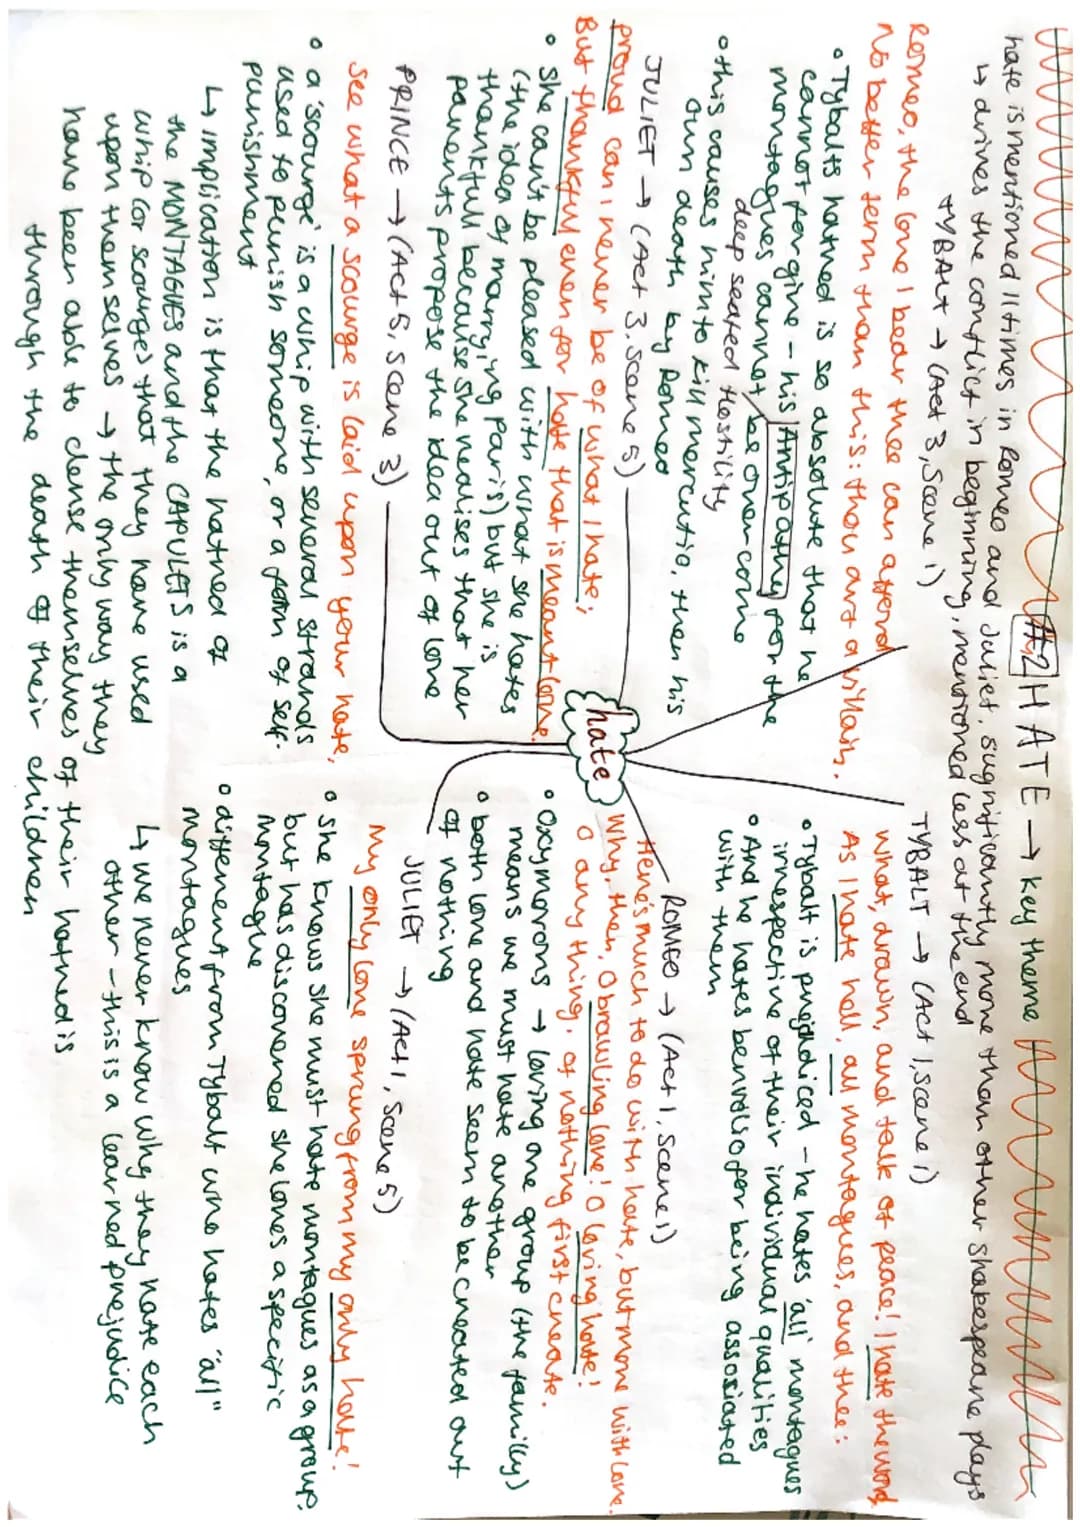 #2 HATE → key theme
hate is mentioned 11 times in Romeo and Juliet, significantly more than other shakespeare plays
↳ drives the conflict in beginning, mentioned less at the end
TYBALT → (Act 3, Scene 1)
Romeo, the love I bear thee can afford
No better term than this: thou art a villain.
• Tybalts hatred is so absolute that he
cannot forgive - his Antipathey for the
montagues cannot be overcome
deep seated Hostility
• this causes him to kill mercutio, then his
own death by Romeo
JULIET → (Act 3, scene 5)
proud can i never be of what I hate;
But thankful even for hate that is meant love.
• She can't be pleased with what she hates
(the idea of marrying paris) but she is
thankfull because she realises that her
parents propose the idea out of love
PRINCE → (Act 5, scene 3)
See what a scourge is laid upon your hate,
• a 'scourge' is a whip with several strands
used to punish someone, or a form of self-
punishment
↳ implication is that the hatred of
the MONTAGUES and the CAPULETS is a
whip (or scourge) that they have used
upon themselves → the only way they
have been able to clense themselves of their hatred is
through the death of their children
hate
TYBALT → (Act 1, scene 1)
What, drawn, and talk of peace! I hate the word,
As I hate hell, all montagues, and thee:
• Tybalt is predjudiced - he hates 'all' montagues
irrespective of their individual qualities
• And he hates benvolio for being assosiated
with them
ROMEO → (Act 1, scene 1)
Here's much to do with hate, but more with love.
Why, then, O brawling love! O loving hate!
O any thing, of nothing first create.
• Oxymorons → loving one group (the family)
means we must hate another
• both love and hate seem to be created out
of nothing
JULIET → (Act 1, Scene 5)
My only love sprung from my only hate!
• She knows she must hate montagues as a group.
but has discovered she loves a specific
montague
• different from Tybalt who hates "all"
montagues
↳ we never know why they hate each
other - this is a learned prejudice